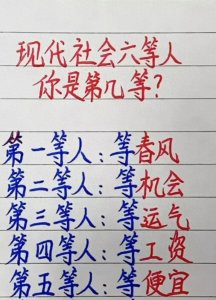 现代社会六等人
你是第几等?
第一等人:等春风
第二等人:等机会
第三等人:等运气
第四等人:等工资
第五等人:等便宜